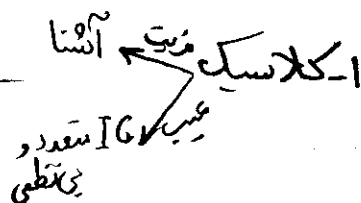 ۱- کلاسیک
مزیت آشنا
عیب IG متعدد و
بی‌نظمی